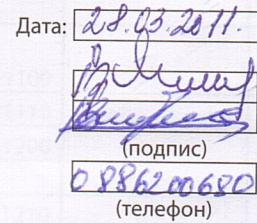 Дата: 28.03.2011.
(подпис)
0886200680
(телефон)